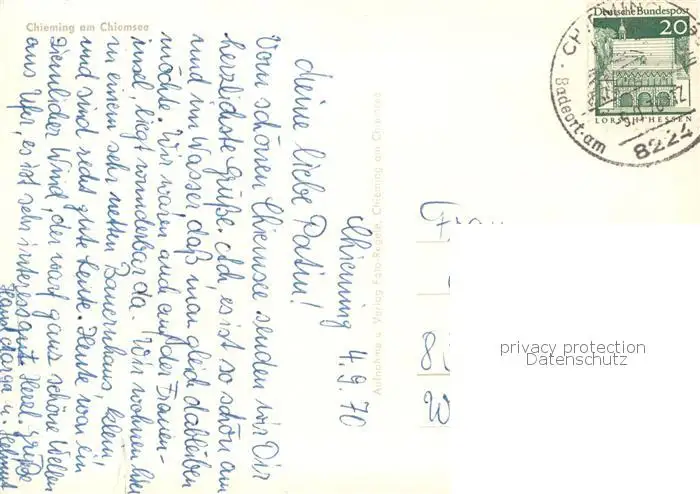 Chieming am Chiemsee
Chieming 4.9.70
Meine liebe Patin!
Vom schönen Chiemsee senden wir Dir
herzlichste Grüße. Ach, es ist so schön am
und im Wasser, daß man gleich dableiben
möchte. Wir waren auch auf der Frauen-
insel, liegt wunderbar da. Wir wohnen hier
in einem sehr netten Bauernhaus, klein,
und sind recht gute Leute. Heute war ein
ziemlicher Wind, der warf ganz schöne Wellen
ans Ufer, es ist sehr interessant. Herzl. Grüße
Marga u. Helmut
Aufnahme u. Verlag Foto-Regele, Chieming am Chiemsee
Deutsche Bundespost
20
LORSCH/HESSEN
Badeort am
8224
Frau
8
W
privacy protection
Datenschutz